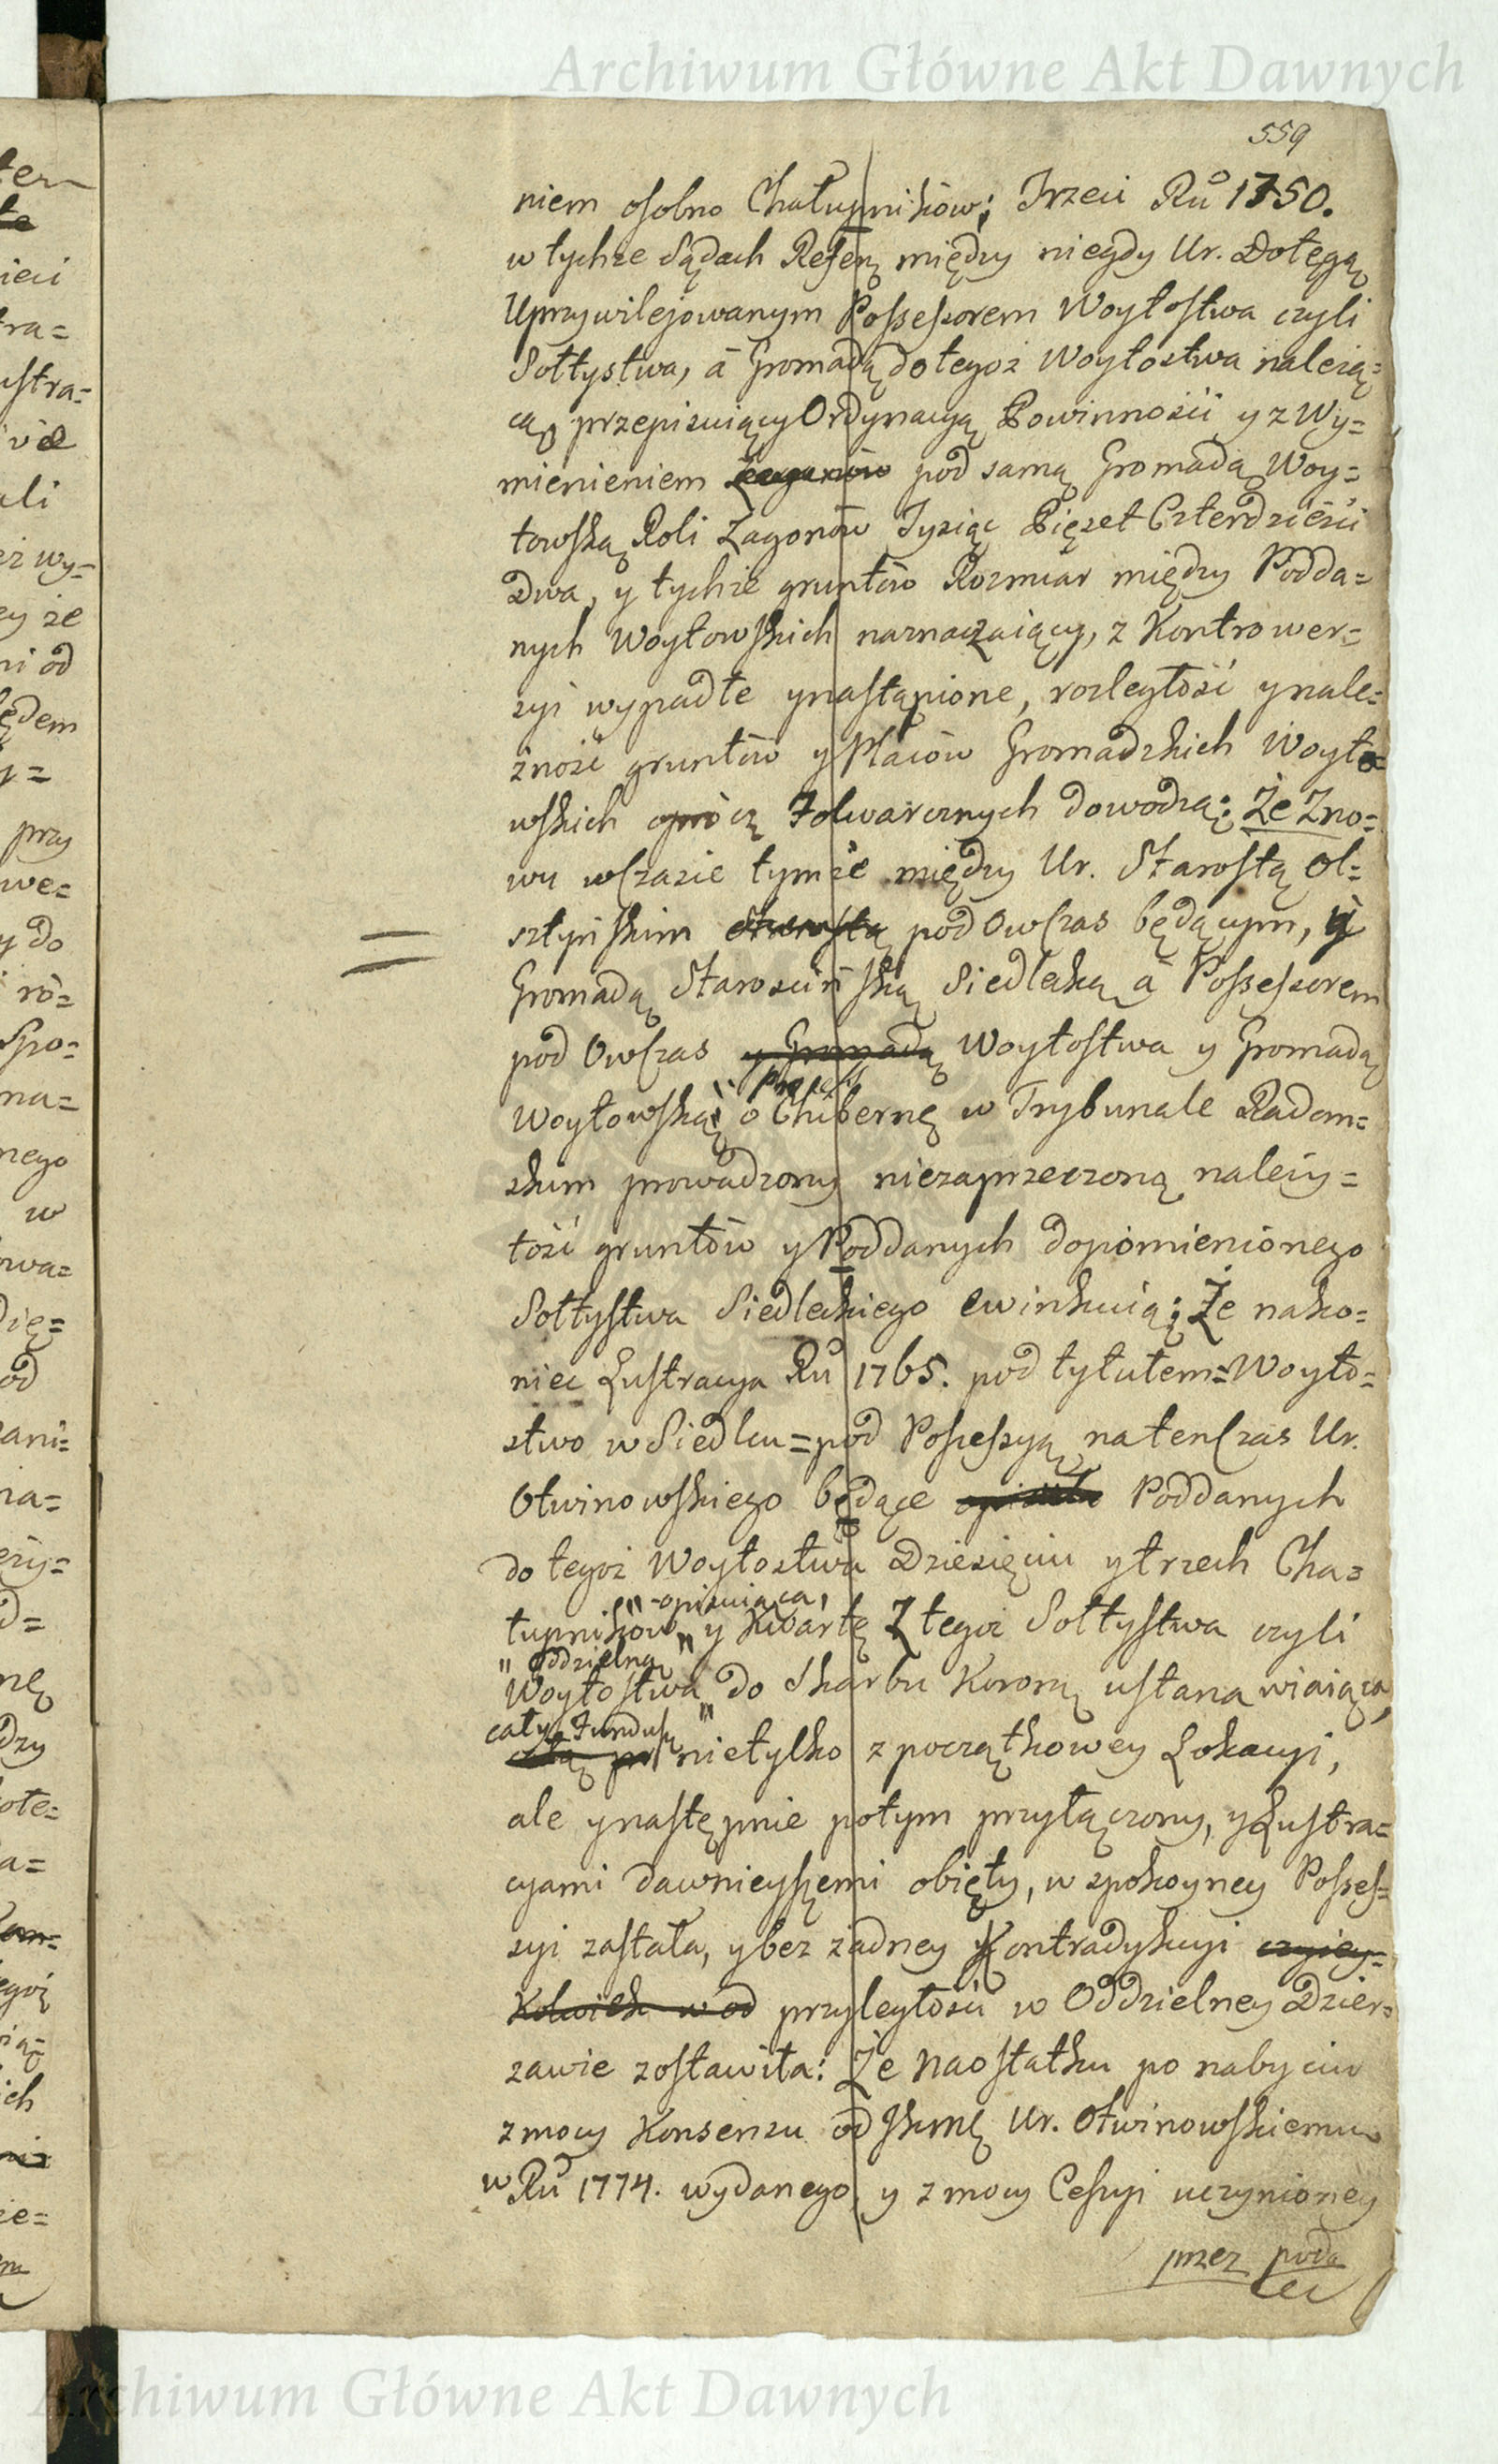 Archiwum Główne Akt Dawnych
559
niem osobno Chałupników; Trzeci Ru 1750.
w tychże Sądach Referą między niegdy Ur. Dołęgą
Uprzywilejowanym Possessorem Woytostwa czyli
Sołtystwa, á Gromadą do tegoż Woytostwa należą=
cą, przepisuiący Ordynacyą Powinności y z Wy=
mienieniem pod samą Gromadą Woy=
towską Roli Zagonów Tysiąc Pięset Czterdzieści
Dwa, y tychże gruntów Rozmiar między Podda=
nych Woytowskich naznaczaiący, z Kontrower=
syi wypadłe y nastąpione, rozległość y nale=
żność gruntów y Placów Gromadzkich Woyto=
wskich oprócz Folwarcznych dowodzą: Że Zno=
wu w czasie tymże między Ur. Starostą Ol=
sztyńskim Starostą pod Owczas będącym, y
Gromadą Starościńską Siedlecką á Possessorem
pod Owczas y Gromadą Woytostwa y Gromadą
Proces
Woytowską o Chibernę w Trybunale Radom=
skim prowadzony niezaprzeczoną należy=
tość gruntów y Poddanych dopomienionego
Sołtystwa Siedleckiego ewinkuią: Że nako=
niec Lustracya Ru 1765. pod tytułem=Woyto=
stwo w Siedlcu=pod Possessyą na tenczas Ur.
Otwinowskiego będące Poddanych
do tegoż Woytostwa Dziesięciu y trzech Cha=
opisuiąca,
łupników y Kwartę Z tegoż Sołtystwa czyli
" oddzielną
Woytostwa " do Skarbu Koroną ustanawiaiąca,
cały Fundusz
nietylko z początkowey Lokacyi,
ale y następnie potym przyłączony, y Lustra=
cyami dawnieyszemi obięty, w spokoyney Posses=
syi zastała, y bez żadney Kontradykcyi czyiey=
Kolwiek w od przyległości w Oddzielney Dzier=
zawie zostawiła: Że Naostatku po nabyciu
z mocy Konsensu od Ur. Otwinowskiemu
w Ru 1774. wydanego y z mocy Cessyi uczynioney
przez poda
Archiwum Główne Akt Dawnych